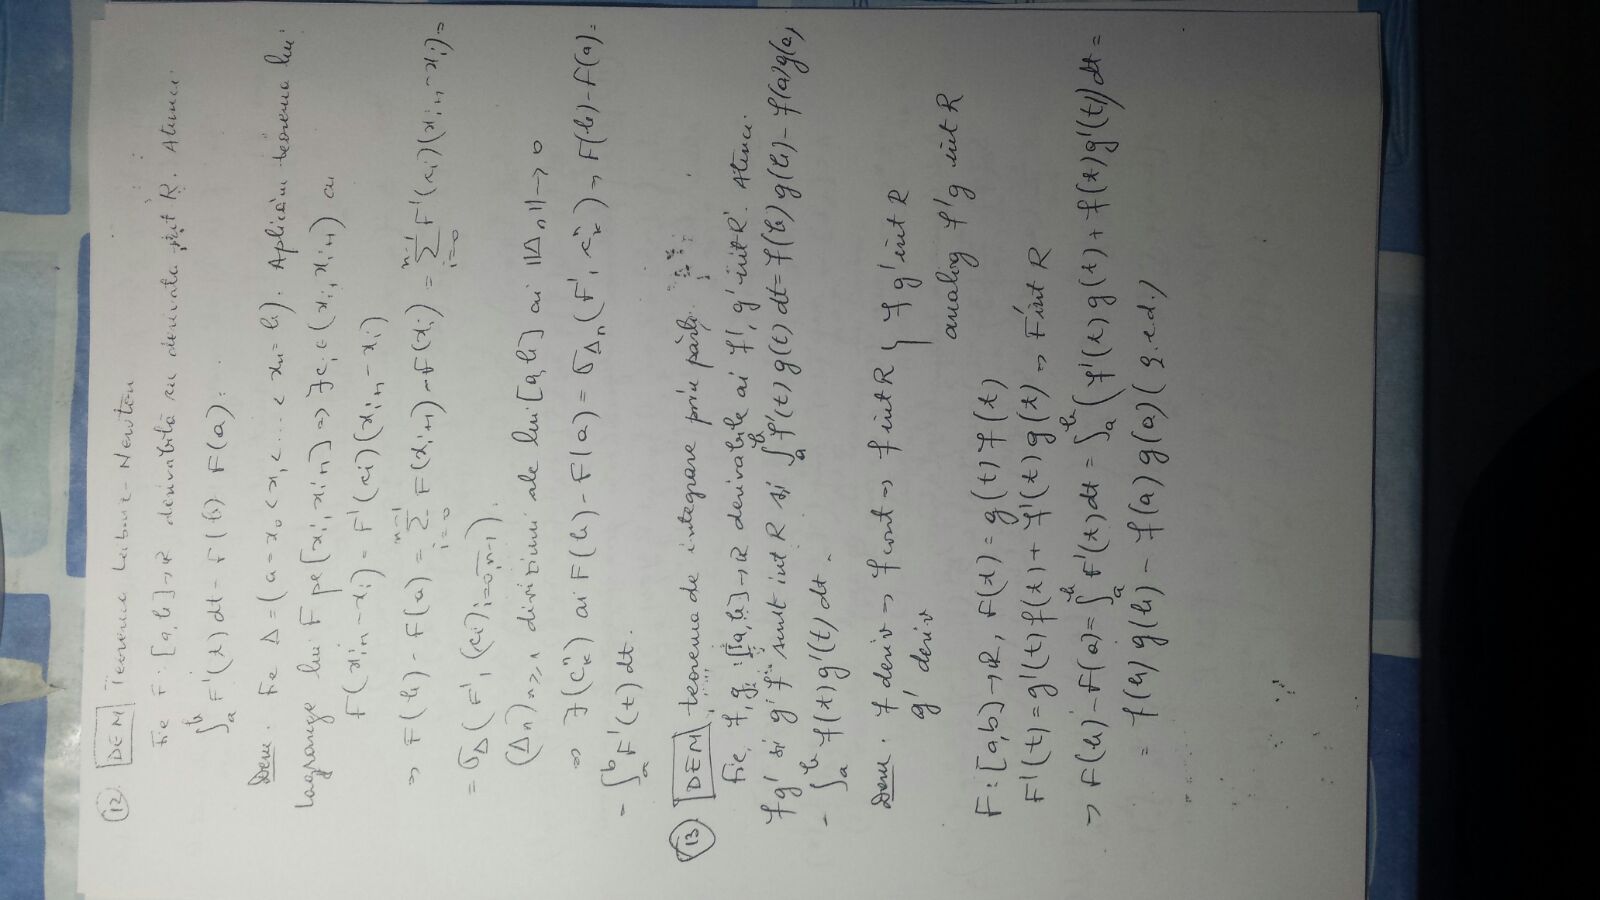 (12) DEM Teorema Leibniz-Newton
Fie F : [a,b] → R derivabilă cu derivata int R. Atunci
∫ₐᵇ F'(t) dt = F(b) F(a).
Dem. Fie Δ = (a = x₀ < x₁ < ... < xₙ = b). Aplicăm teorema lui
Lagrange lui F pe [xᵢ, xᵢ₊₁] ⇒ ∃ cᵢ ∈ (xᵢ, xᵢ₊₁) ai
F(xᵢ₊₁ - xᵢ) = F'(ci)(xᵢ₊₁ - xᵢ)
⇒ F(b) - F(a) = Σᵢ₌₀ⁿ⁻¹ F(xᵢ₊₁) - F(xᵢ) = Σᵢ₌₀ⁿ⁻¹ F'(ci)(xᵢ₊₁ - xᵢ) =
= σ_Δ(F', (ci)i=0,n-1).
(Δₙ)ₙ≥₁ diviziuni ale lui [a,b] ai ||Δₙ|| → 0
⇒ ∃ (cₖⁿ) ai F(b) - F(a) = σ_Δₙ(F', cₖⁿ) ⇒ F(b) - F(a) =
= ∫ₐᵇ F'(t) dt.
(13) DEM teorema de integrare prin părți
Fie f, g : [a,b] → R derivabile ai f', g' int R. Atunci
fg' și g'f sunt int R și ∫ₐᵇ f'(t) g(t) dt = f(b) g(b) - f(a)g(a)
- ∫ₐᵇ f(t)g'(t) dt.
Dem. f deriv ⇒ f cont ⇒ f int R } f g' int R
g' deriv
analog f'g int R
F : [a,b] → R, F(t) = g(t) f(t)
F'(t) = g'(t) f(t) + f'(t) g(t) ⇒ F' int R
⇒ F(b) - F(a) = ∫ₐᵇ F'(t) dt = ∫ₐᵇ (f'(t) g(t) + f(t) g'(t)) dt =
= f(b) g(b) - f(a) g(a) (q.e.d.)